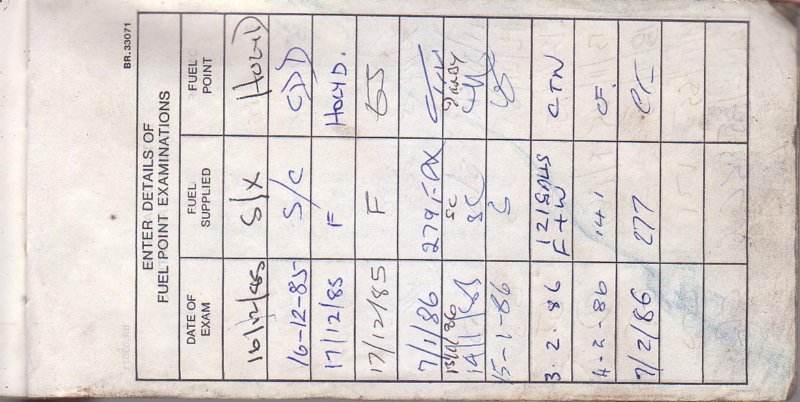 BR.33071
ENTER DETAILS OF
FUEL POINT EXAMINATIONS
DATE OF
EXAM
FUEL
SUPPLIED
FUEL
POINT
16/12/85 S/X HOLYD
16-12-85 S/C
17/12/85 F HOLYD.
17/12/85 F
7/1/86 279
13/1/86 SC
14/1/86 SC
15-1-86 S
3.2.86 121 GALLS F+W CTN
4-2-86 141 CF.
7/2/86 277